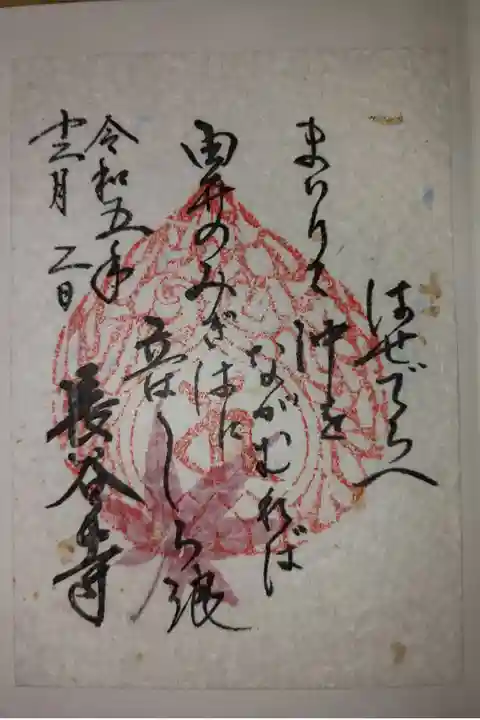 はせでらへ
まいりて沖を
ながむれば
由井のみぎはに
立はしら浪
令和五年
十二月二日
長谷寺